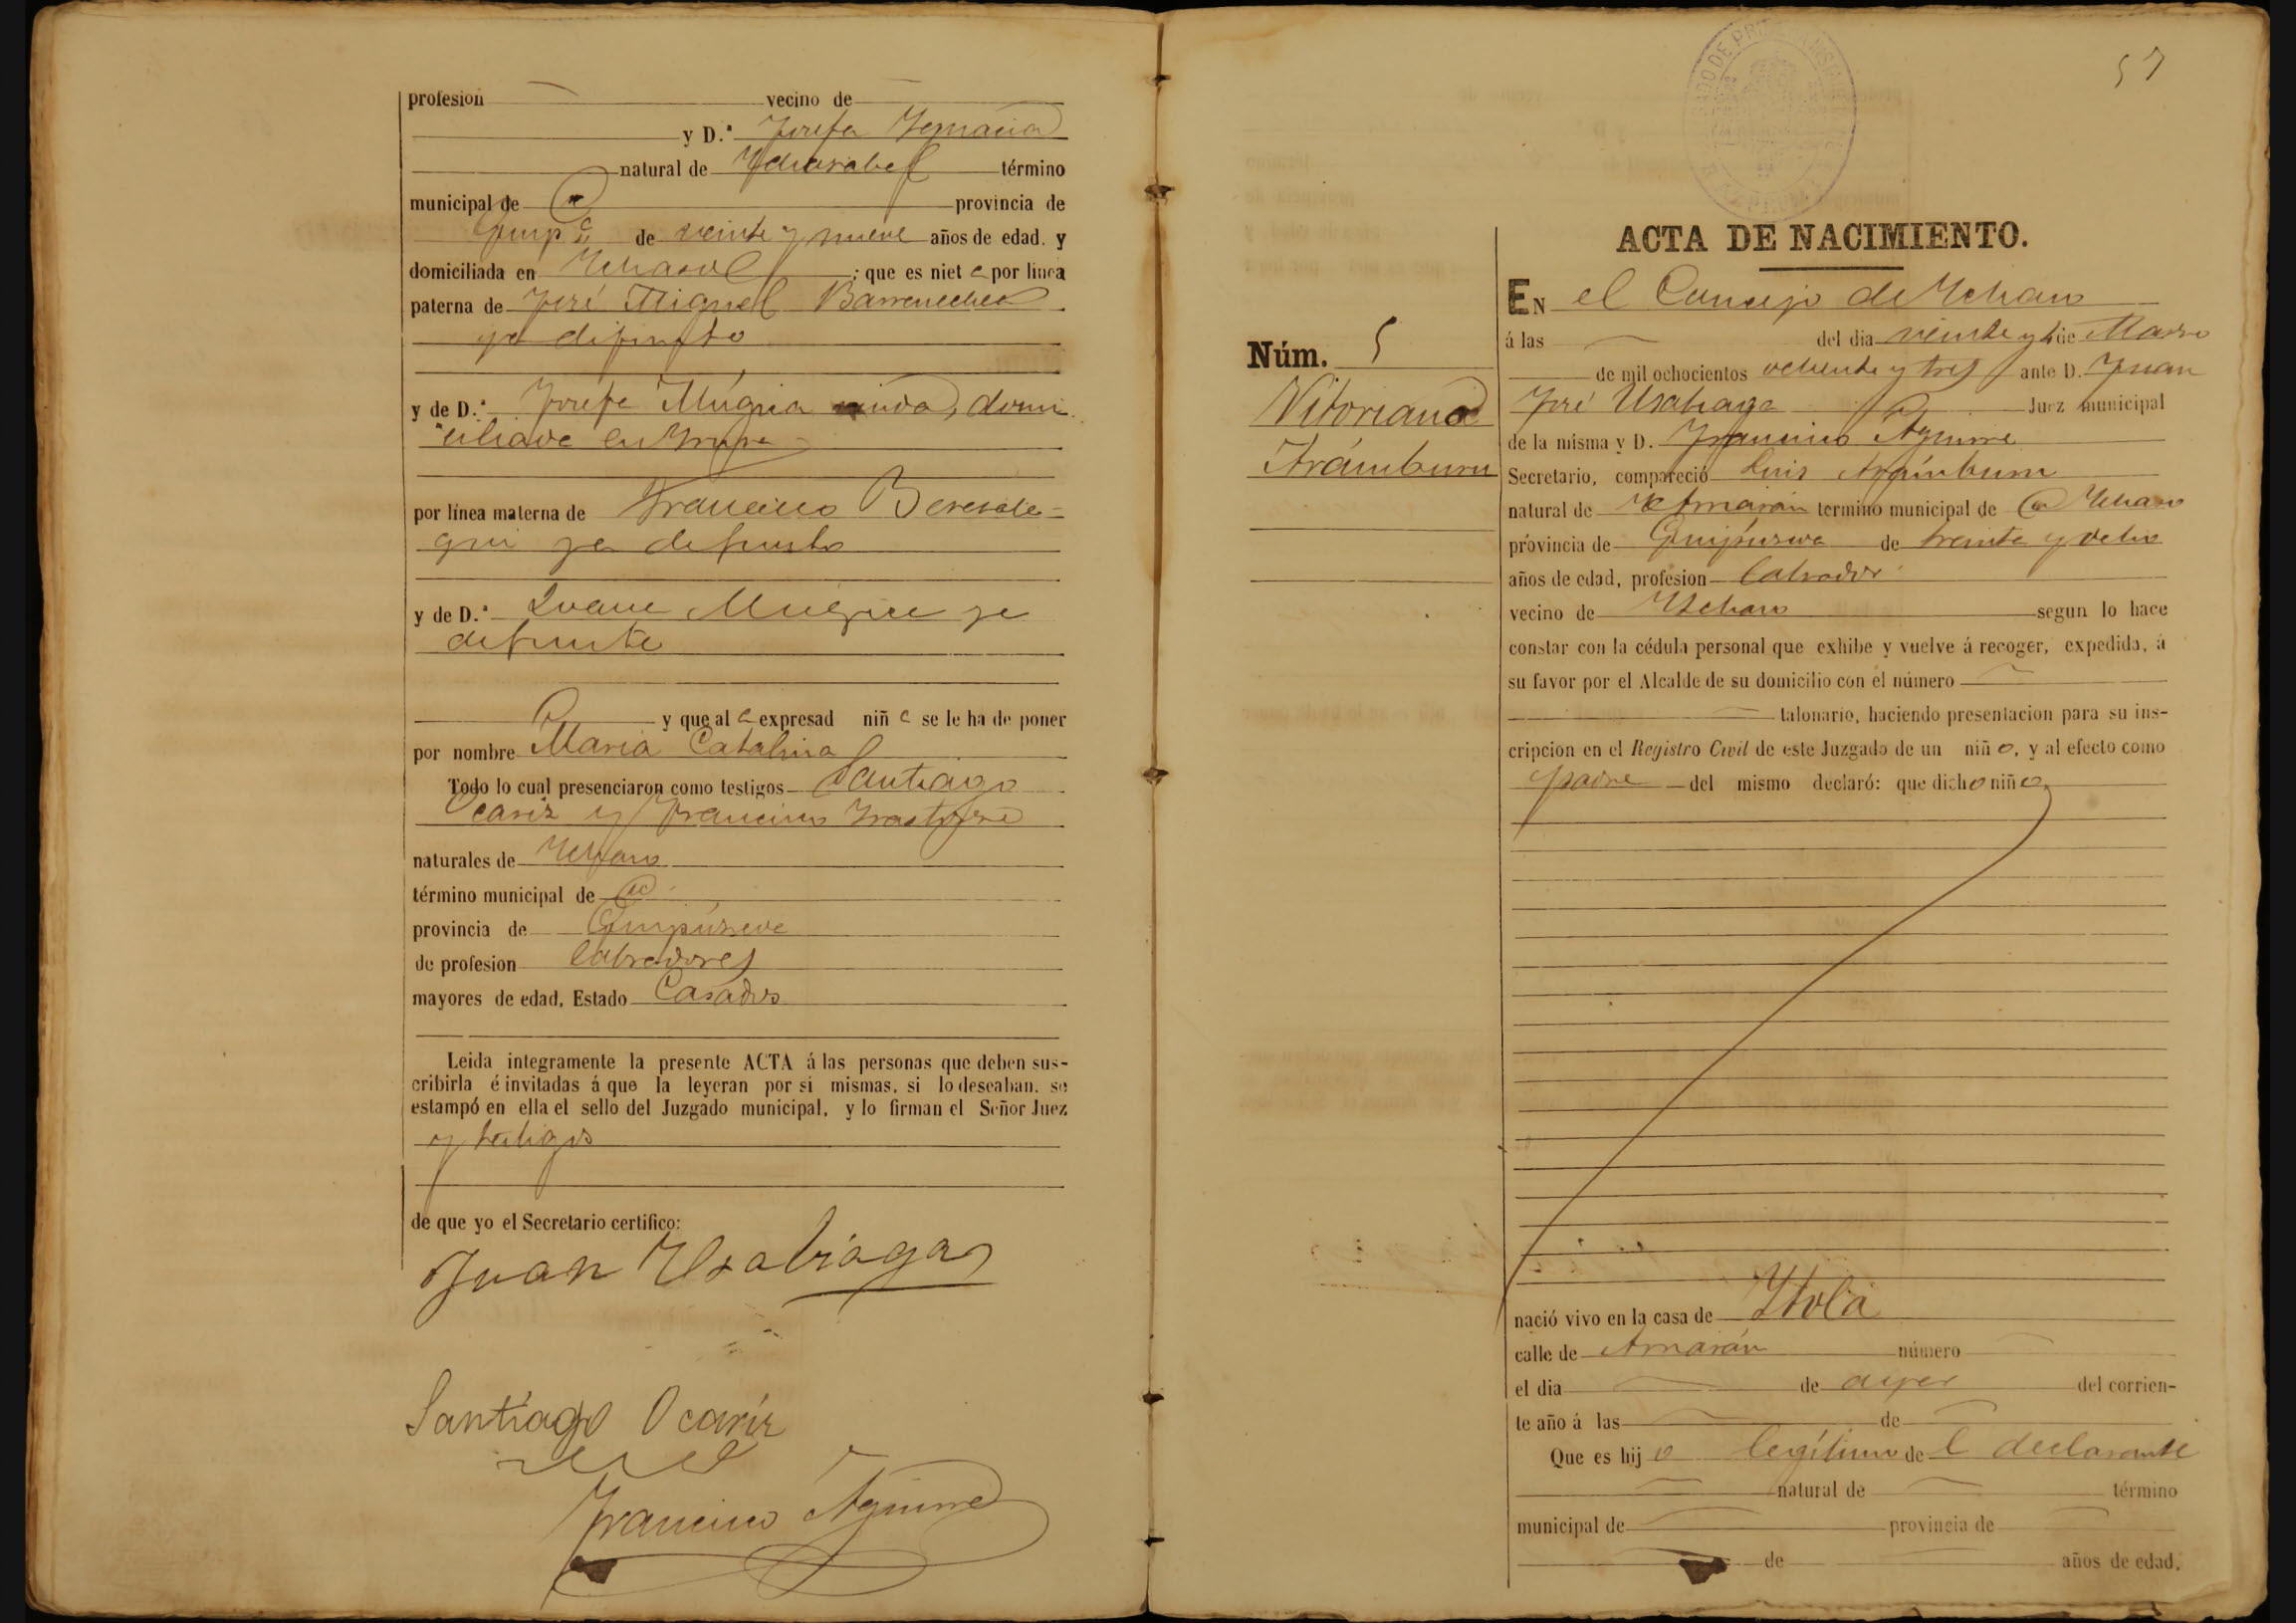 profesion vecino de
y D.ª Josefa Ygnacia
natural de término
municipal de provincia de
Guip.ª de veinte y nueve años de edad. y
domiciliada en ; que es niet a por línea
paterna de José Miguel Barrenechea
ya difunto
y de D.ª Josefa Múgica viuda, domi
ciliada en
por línea materna de Francisco
gui ya difunto
y de D.ª Múgica ya
difunta
y que al a expresad niñ a se le ha de poner
por nombre María Catalina
Todo lo cual presenciaron como testigos Santiago
Ocariz y Francisco
naturales de Ychaso
término municipal de id.
provincia de Guipúzcoa
de profesion labradores
mayores de edad, Estado Casados
Leida integramente la presente ACTA á las personas que deben sus-
cribirla é invitadas á que la leyeran por si mismas, si lo deseaban. se
estampó en ella el sello del Juzgado municipal, y lo firman el Señor Juez
y testigos
de que yo el Secretario certifico:
Juan Usabiaga
Santiago Ocariz
Francisco Aguirre
57
ACTA DE NACIMIENTO.
Núm. 5
Vitoriano
Arámburu
EN el Concejo de Ychaso
á las del dia veinte y de Marzo
de mil ochocientos ochenta y tres ante D. Juan
José Usabiaga Juez municipal
de la misma y D. Francisco Aguirre
Secretario, compareció Luis Arámburu
natural de Arnarán termino municipal de Ychaso
provincia de Guipúzcoa de treinta y ocho
años de edad, profesion labrador
vecino de Ychaso segun lo hace
constar con la cédula personal que exhibe y vuelve á recoger, expedida, á
su favor por el Alcalde de su domicilio con el número
talonario, haciendo presentacion para su ins-
cripcion en el Registro Civil de este Juzgado de un niñ o, y al efecto como
padre del mismo declaró: que dicho niño
nació vivo en la casa de Ytola
calle de Arnarán número
el dia de ayer del corrien-
te año á las de
Que es hij o legítimo de l declarante
natural de término
municipal de provincia de
de años de edad,